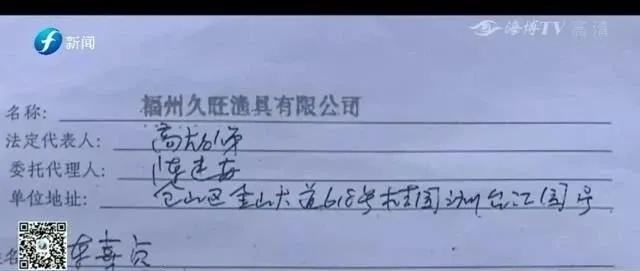 新闻
海博TV 高清
名称: 福州久旺渔具有限公司
法定代表人: 高
委托代理人: 陈建
单位地址: 仓山区金山大道618号桔园洲台江园 号
姓名: